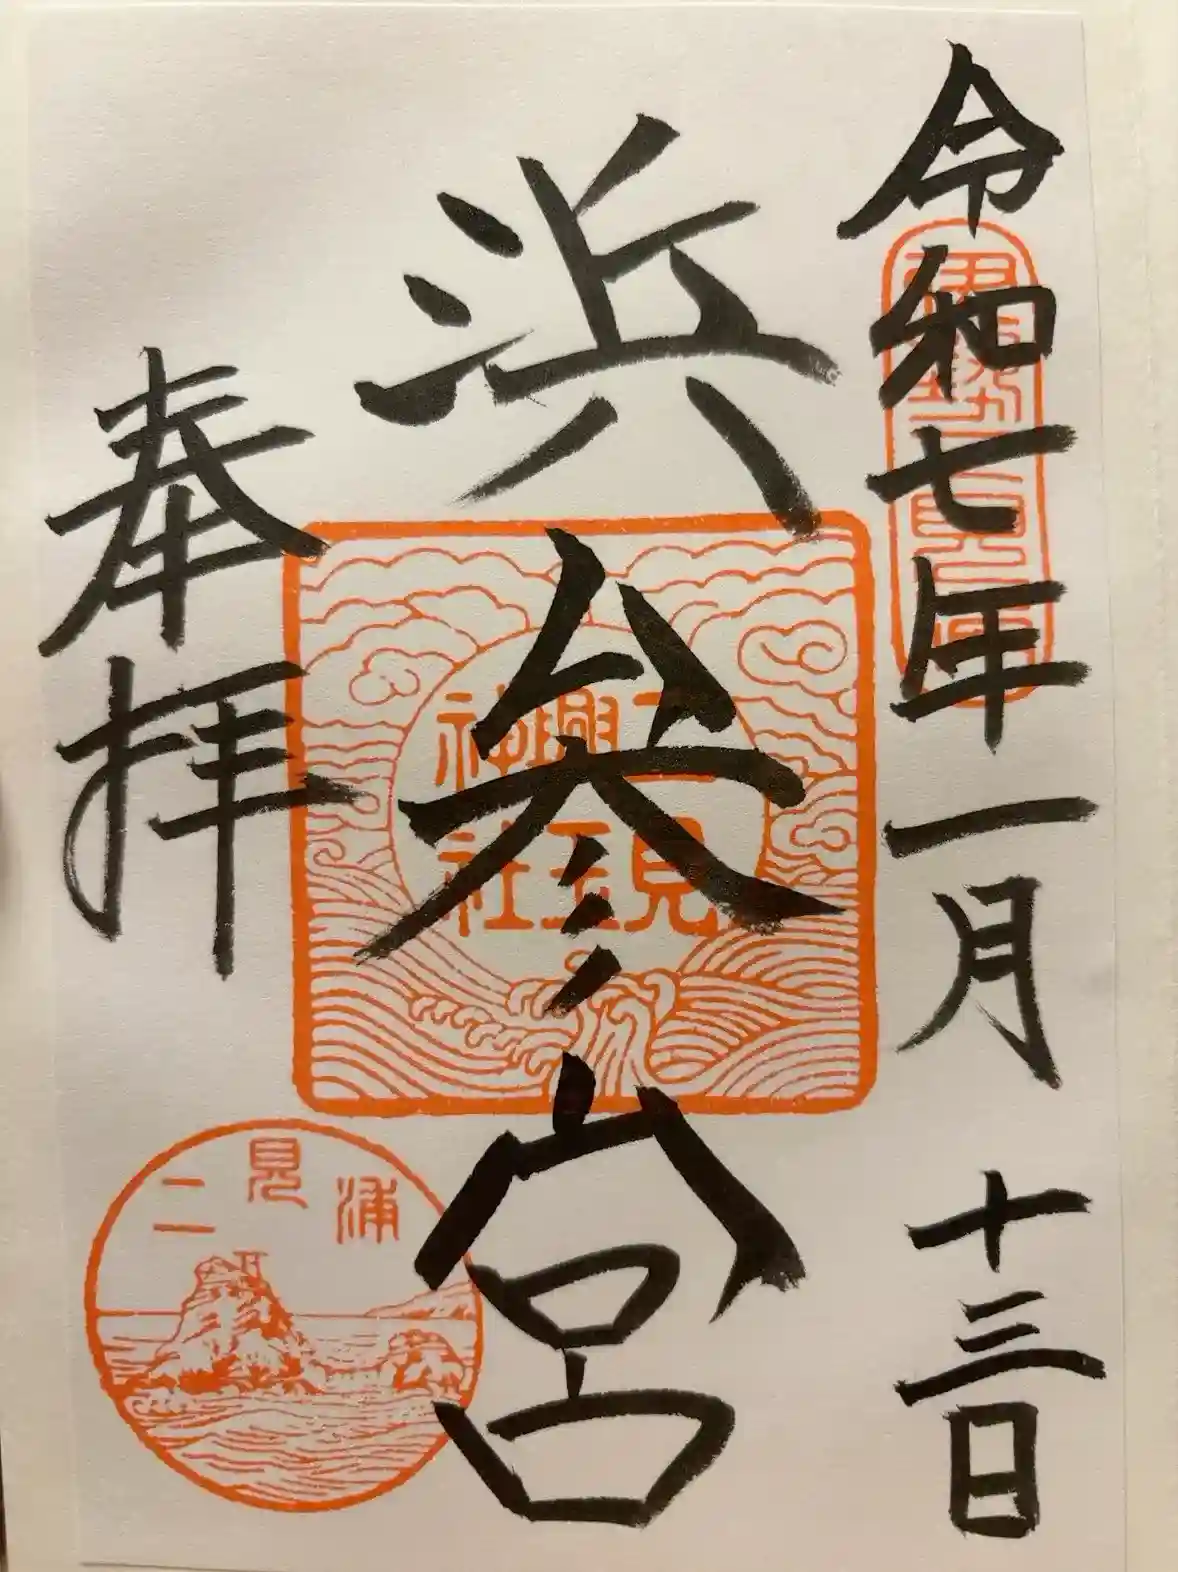 令和七年一月十三日
伊勢二見浦
浜参宮
二見
興玉
神社
奉拝
二見浦